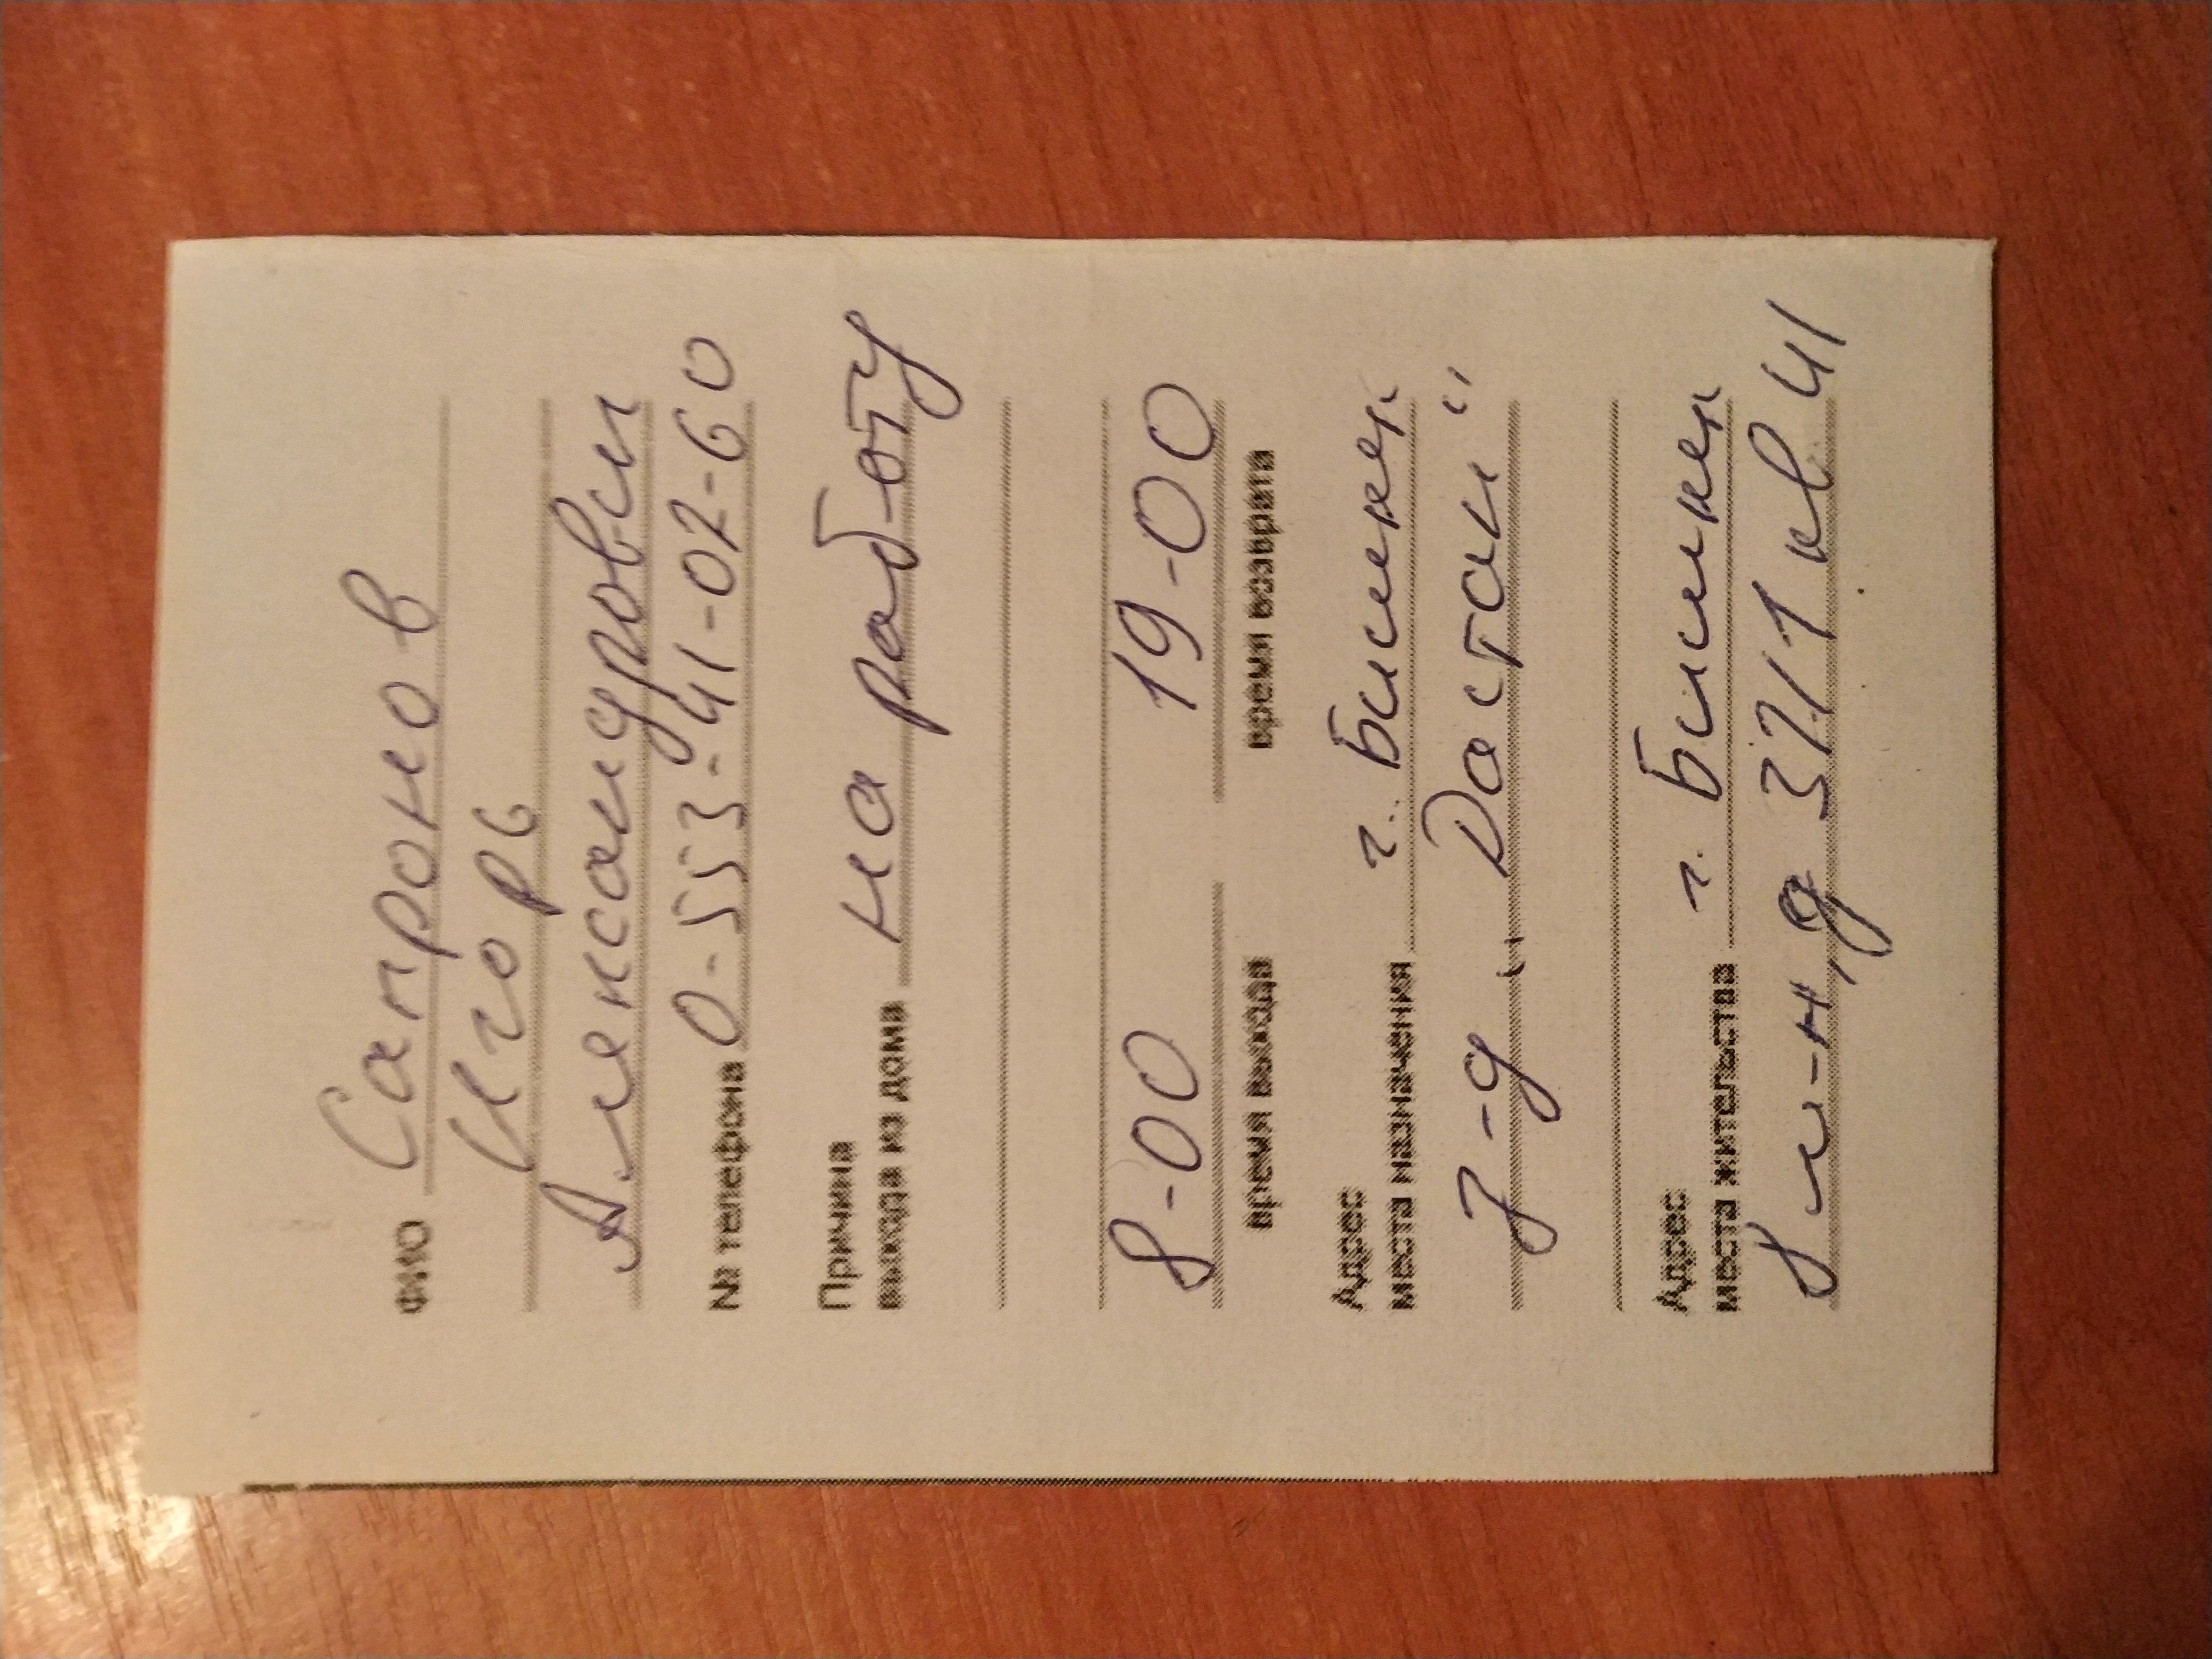 ФИО Сапронов
Игорь
Александрович
№ телефона 0-553-41-02-60
Причина
выхода из дома на работу
8-00 19-00
время выхода время возврата
Адрес
места назначения г. Бишкек
з-д „Дастан"
Адрес
места жительства г. Бишкек
8 м-н, д 37/1 кв 41